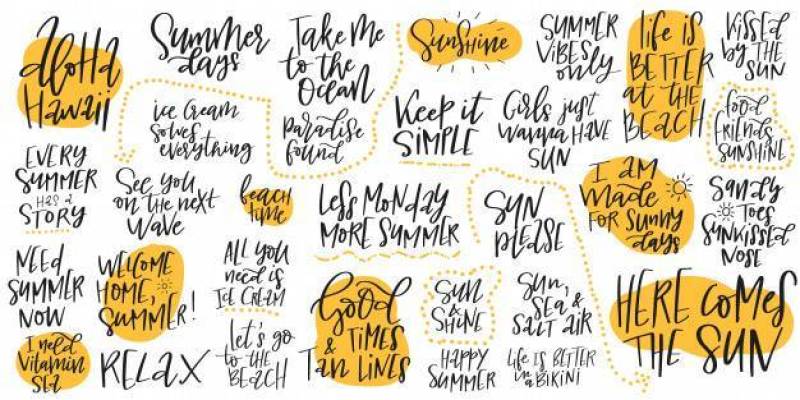 aloha
Hawaii
Summer
days
Take me
to the
Ocean
Sunshine
SUMMER
ViBes
only
life is
BETTER
at the
BEACH
Kissed
by THE
SUN
ice cream
solves
everything
paradise
found
Keep it
SIMPLE
Girls just
wanna HAVE
SUN
food
FRiENDS
SUNSHINE
EVERY
SUMMER
HAS a
STORY
See you
on the next
Wave
beach
time
Less Monday
MORE SUMMER
SUN
PLEASE
I am
made
FOR SUNNY
days
Sandy
Toes
Sunkissed
NOSE
NEED
SUMMER
NOW
WELCOME
HOME,
SUMMER!
ALL you
need is
ICE CREAM
Good
TIMES
&
Tan LINES
SUN
&
SHINE
Sun,
SEA &
SALT AiR
HERE COMES
THE SUN
I need
Vitamin
SEA
RELAX
Let's go
to THE
BEACH
HAPPY
SUMMER
Life is BETTER
in a BiKiNi